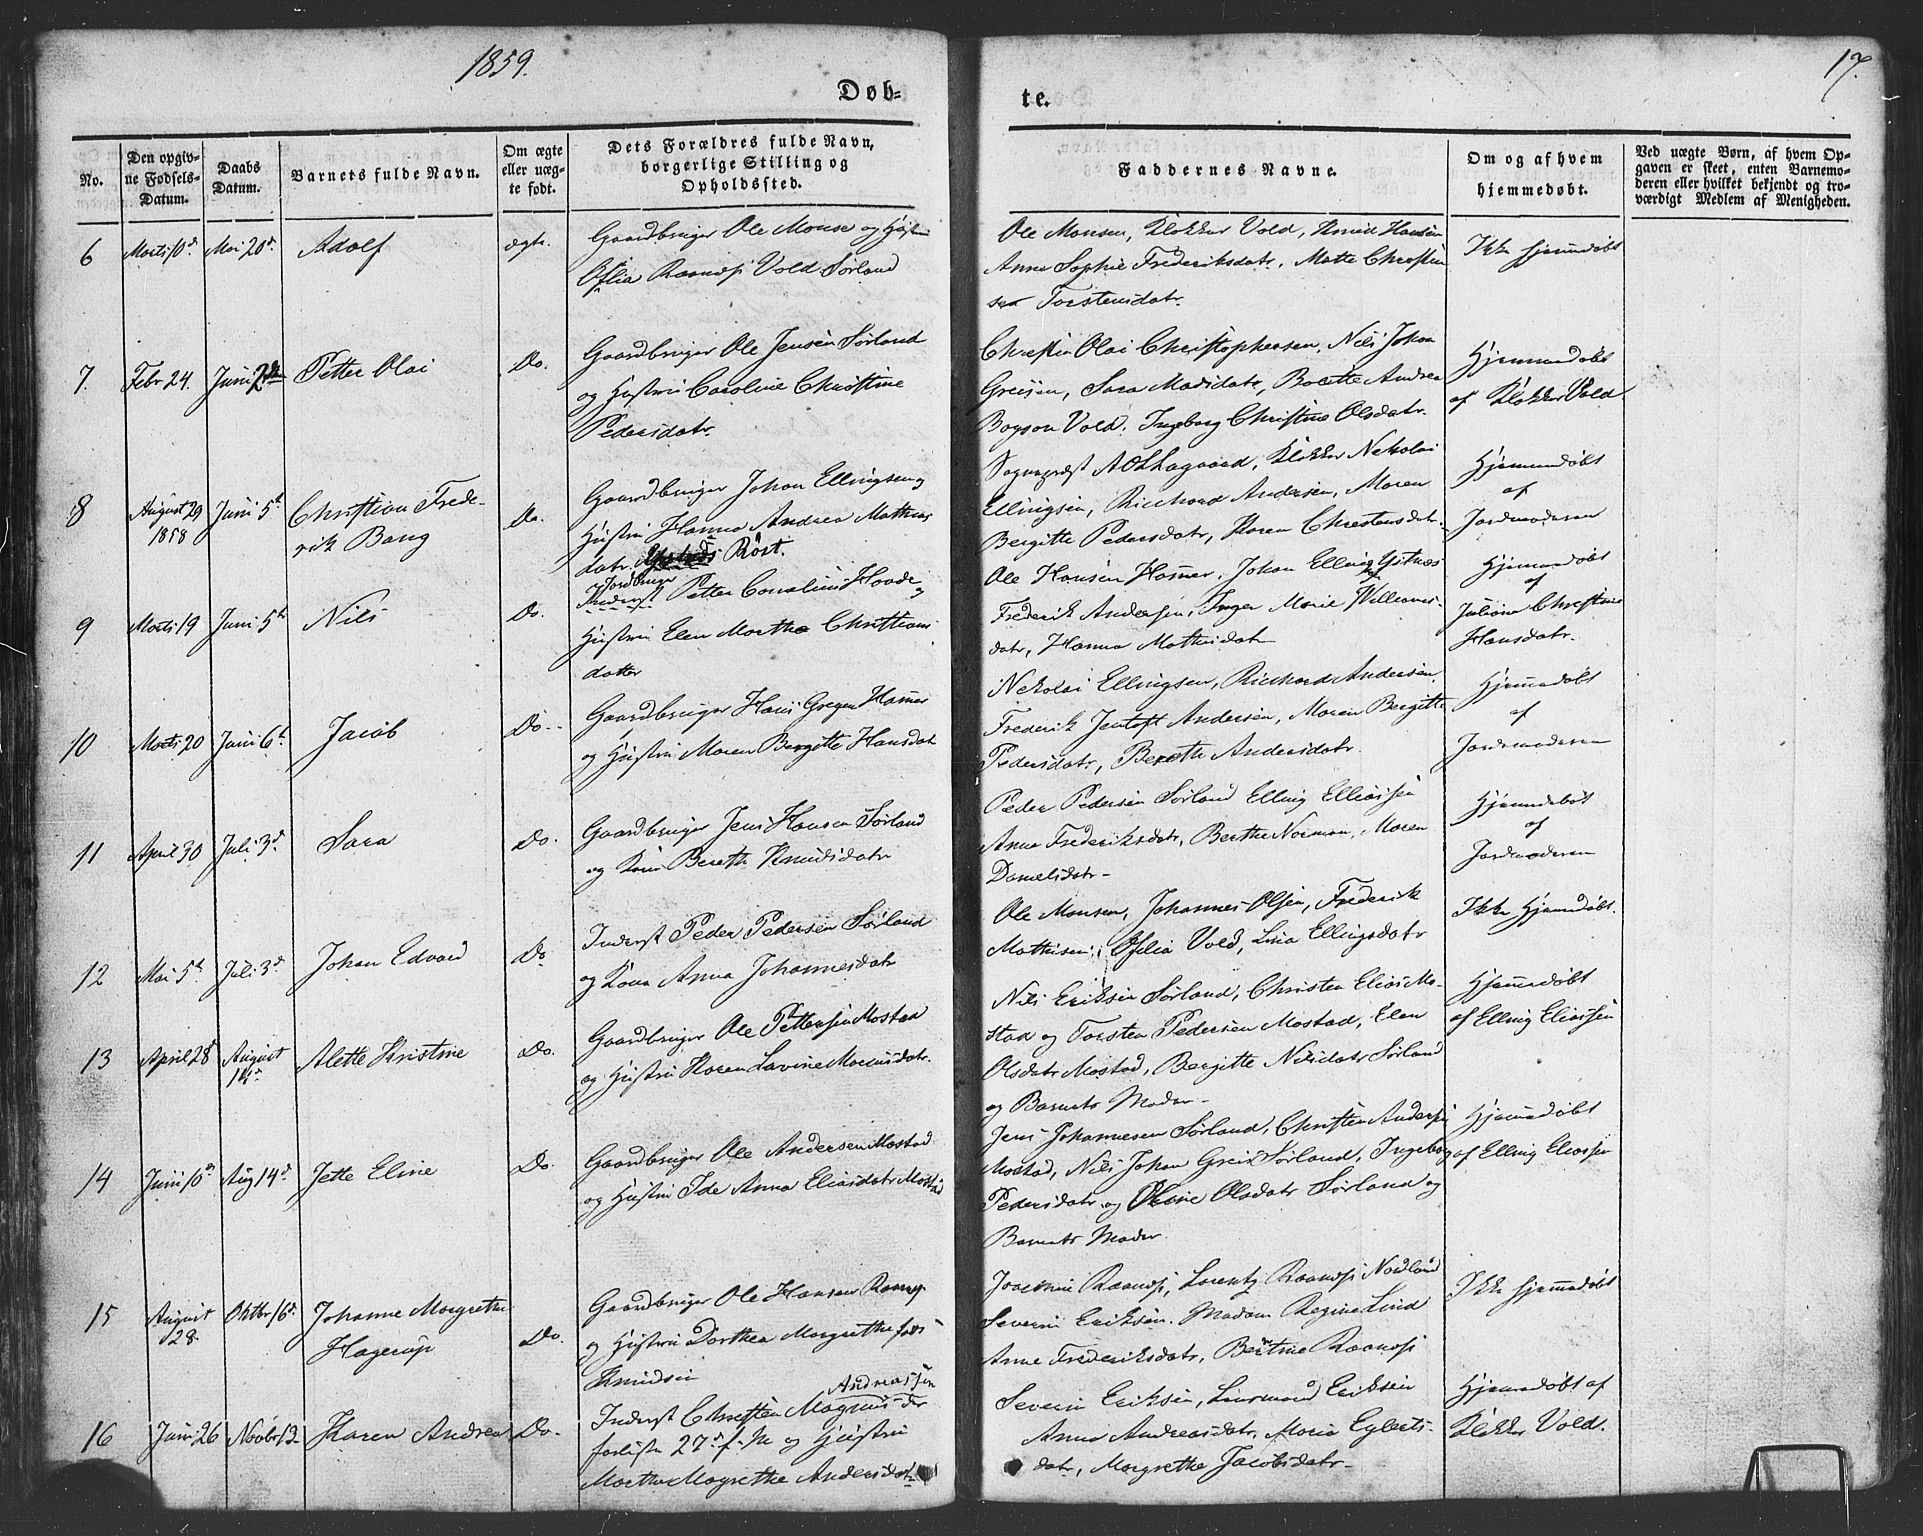 1859.
17.
Døb-
te.
No.
Den opgiv-
ne Fødsels-
Datum.
Daabs
Datum.
Barnets fulde Navn.
Om ægte
eller uæg-
te født.
Dets Forældres fulde Navn,
borgerlige Stilling og
Opholdssted.
Faddernes Navne.
Om og af hvem
hjemmedøbt.
Ved uægte Børn, af hvem Op-
gaven er skeet, enten Barnemo-
deren eller hvilket bekjendt og tro-
værdigt Medlem af Menigheden.
6 Marts 10d Mai 20d Adolf ægte.
Gaardbruger Ole Monse og
Ofilia Vold Sørland
Ole Monsen, Klokker Vold, Hansen
Anna Sophie Frederiksdatr, Mette Christin
Torstensdatr.
Ikke Hjemmedøbt
7. Febr 24. Juni Petter Olai Do.
Gaardbruger Ole Jensen Sørland
og Hustru Caroline Christine
Pedersdatr.
Christen Olai Christophersen, Nils Johan
Greisen, Sara Madsdatr, Berette Andrea
Bogson Vold. Ingeborg Christine Olsdatr.
Hjemmedøbt
af Klokker Vold
8 August 29
1858
Juni 5t Christian Frede-
rik Bang
Do.
Gaardbruger Johan Ellingsen og
Hustru Hanna Andrea Mathias
datr. Røst.
Sognepræst Klokker Nekolai
Ellingsen, Richard Andersen, Maren
Bergitte Pedersdatr, Karen Christensdatr.
Hjemmedøbt
af
Jordmoderen
9 Marts 19 Juni 5th Nils Do.
Jordbruger
Petter Cornelius
Hustru Elen Marthe Christians
datter
Ole Hansen Hamer, Johan Elling
Frederik Andersen, Inger Marie Willums-
datr, Hanna Mathisdatr
Hjemmedøbt
af
Juliane Christine
Hansdatr.
10 Marts 20 Juni 6t Jacob Do.
Gaardbruger Hans Greger Hamer
og Hustru Maren Bergitte Hansdatr
Nekolai Ellingsen, Richard Andersen.
Frederik Jentoft Andersen, Maren Bergitte
Pedersdatr, Bereth Andersdatr.
Hjemmedøbt
af
Jordemoderen
11 April 30 Juli 3d Sara Do.
Gaardbruger Jens Hansen Sørland
og Kone Bereth Knudsdatr
Peder Pedersen Sørland Elling Elliassen
Anna Frederiksdatr, Berthe Norman, Maren
Danielsdatr-
Hjemmedøbt
af
Jordmoderen
12 Mai 5t Juli 3d Johan Edvard Do
Inderst Peder Pedersen Sørland
og Kone Anna Johannesdatr
Ole Monsen, Johannes Olsen, Frederik
Mathisen, Ofilia Vold, Lina Ellingsdatr
Ikke Hjemmdøbt.
13 April 28d August
14d Alette Kristine Do.
Gaardbruger Ole Pettersen Mostad
og Hustru Karen Lavine Mariusdatr.
Nils Eriksen Sørland, Christen Elias Mo-
stad og Torsten Pedersen Mostad, Elen
Olsdatr Mostad, Bergitte Nilsdatr Sørland
og Barnets Moder-
Hjemmdøbt
af Elling Eliassen
14 Juni 10d Aug 14d. Jette Eline Do.
Gaardbruger Ole Andersen Mostad
og Hustru Ide Anna Eliasdatr Mostad
Jens Johannesen Sørland, Christen Andersen
Mostad, Nils Johan Greis Sørland, Ingeborg
Pedersdatr. og Oline Olsdatr Sørland og
Barnets Moder.
Hjemmedøbt
af Elling Eliassen
15 August
28. Oktbr 16d. Johanne Margrethe
Hagerup Do.
Gaardbruger Ole Hansen
og Hustru Dorthea Margrethe født
Knudsen
Joachim, Lorentz Nordland
Severin Eriksen. Madam Regine Lind
Anne Frederiksdatr,
Ikke Hjemmedøbt
16 Juni 26 Novbr 13 Karen Andrea Do.
Andreassen
Inderst Christen Magnus der
forliste 27d f. M og Hustru
Martha Magrethe Andersdatr
Severin Eriksen, Eriksen
Anna Andreasdatr, Maria Egberts-
datr, Margrethe Jacobsdatr-
Hjemmedøbt af
Klokker Vold.